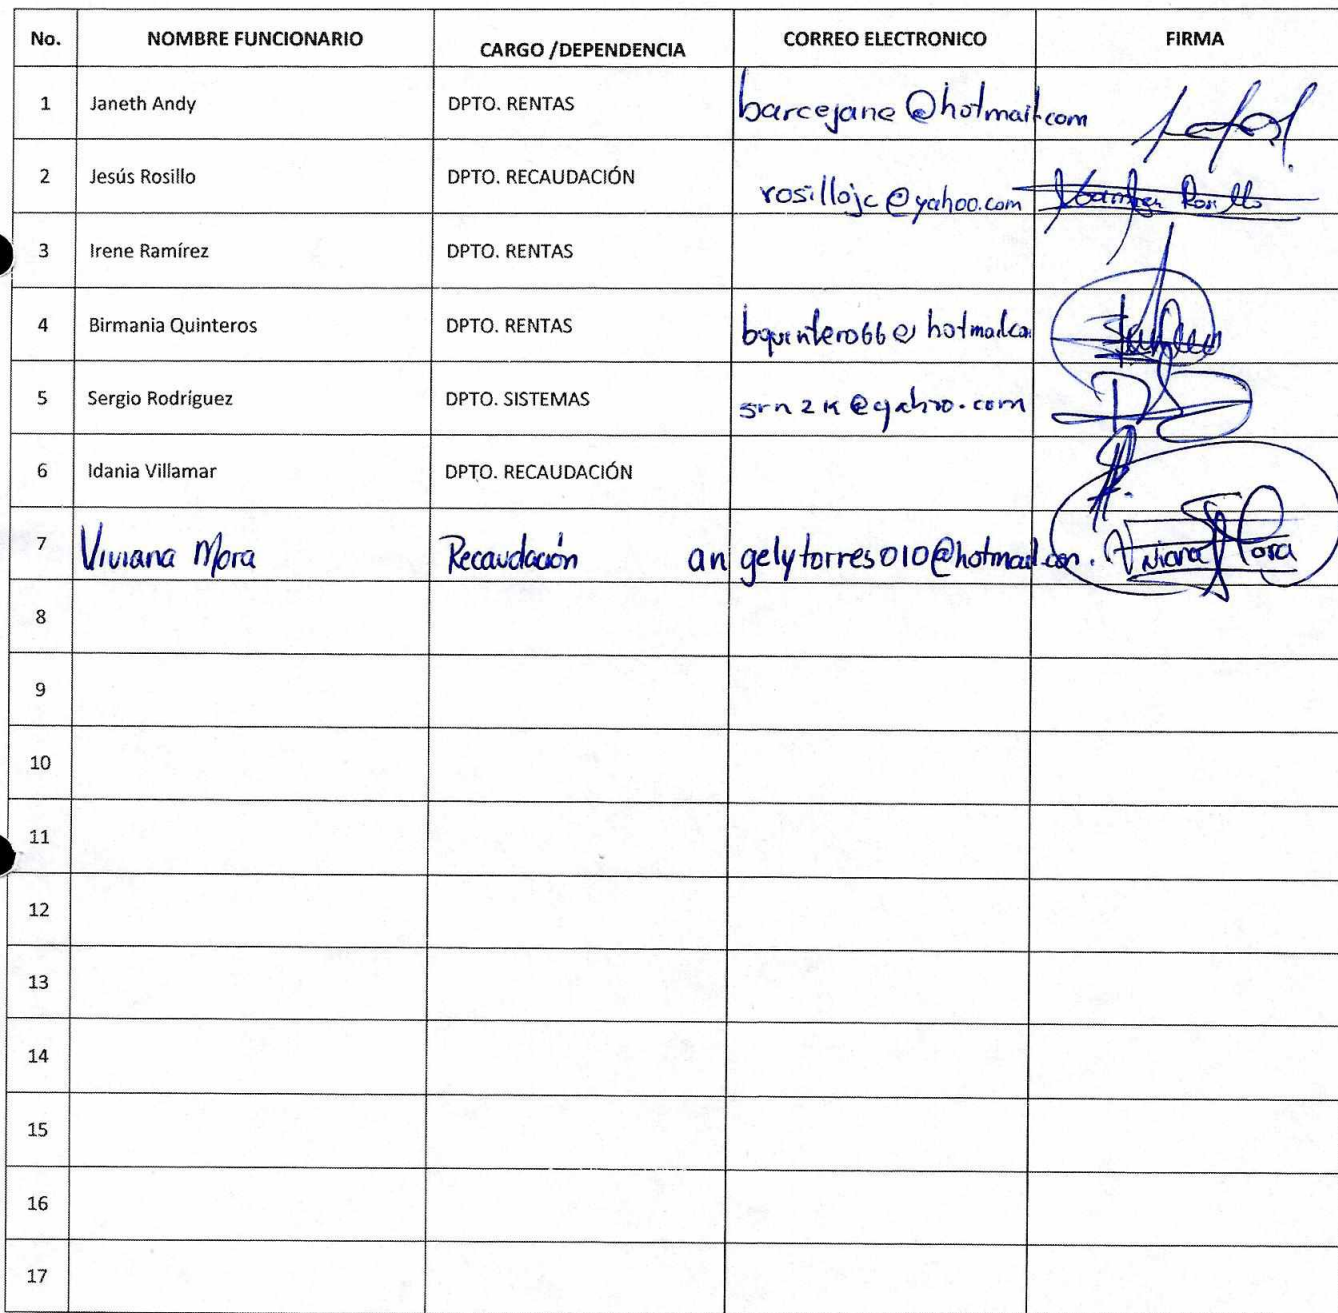 No. NOMBRE FUNCIONARIO CARGO /DEPENDENCIA CORREO ELECTRONICO FIRMA
1 Janeth Andy DPTO. RENTAS barcejane@hotmail.com
2 Jesús Rosillo DPTO. RECAUDACIÓN rosillojc@yahoo.com
3 Irene Ramírez DPTO. RENTAS
4 Birmania Quinteros DPTO. RENTAS
5 Sergio Rodríguez DPTO. SISTEMAS
6 Idania Villamar DPTO. RECAUDACIÓN
7 Viviana Mora Recaudación angelytorres010@hotmail.com. Viviana Mora
8
9
10
11
12
13
14
15
16
17